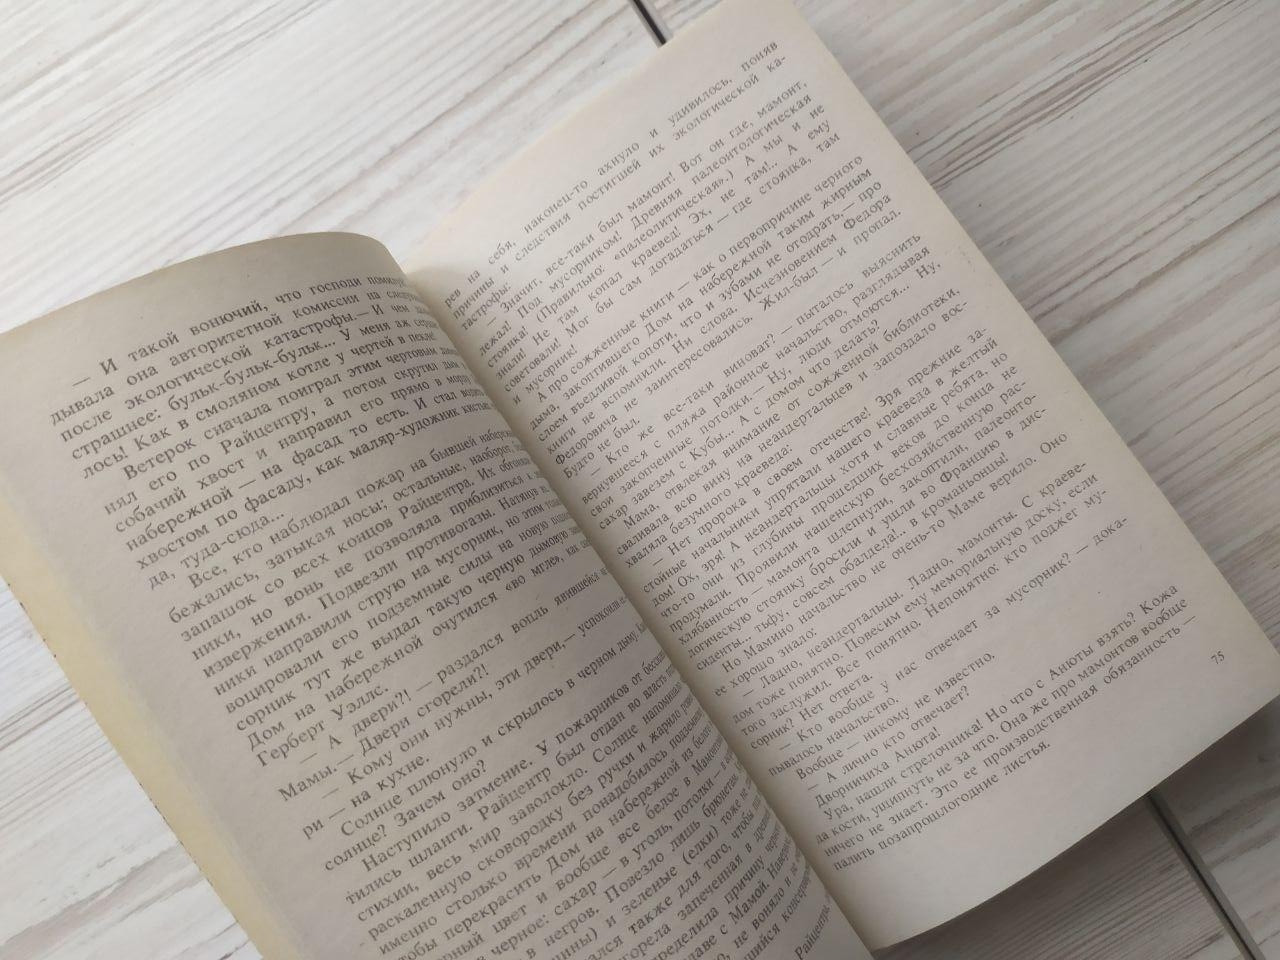 — И такой вонючий, что господи помилуй
дывала она авторитетной комиссии на
после экологической катастрофы.— И чем
страшнее: бульк-бульк-бульк... У меня аж сердце
лось! Как в смоляном котле у чертей в пекле!
Ветерок сначала поиграл этим чертовым дымом
нял его по Райцентру, а потом скрутил дым
собачий хвост и направил его прямо в морду
набережной — на фасад то есть. И стал водить
хвостом по фасаду, как маляр-художник кистью:
да, туда-сюда...
Все, кто наблюдал пожар на бывшей набережной
бежались, затыкая носы; остальные, наоборот,
запашок со всех концов Райцентра. Их обгоняли
ники, но вонь не позволяла приблизиться к
извержения. Подвезли противогазы. Натянув
ники направили струю на мусорник, но этим только
воцировали его подземные силы на новую
сорник тут же выдал такую черную дымовую
Дом на набережной очутился «во мгле», как
Герберт Уэллс.
— А двери?! — раздался вопль явившейся
Мамы.— Двери сгорели?!
— Кому они нужны, эти двери,— успокоили
ри — на кухне.
Солнце плюнуло и скрылось в черном дыму.
солнце? Зачем оно?
Наступило затмение. У пожарников от
тились шланги. Райцентр был отдан во власть
стихии, весь мир заволокло. Солнце напоминало
раскаленную сковородку без ручки и жарило
именно столько времени понадобилось подземным
тобы перекрасить Дом на набережной из белого
рный цвет и вообще все белое в Мамонтовке
в черное: сахар — в уголь, потолки — в
в негров. Повезло лишь брюнетам.
щины) и зеленые (елки) тоже не
лся также для того, чтобы
горела запеченная в
пределила причину черного
лаве с Мамой.
но, не воняло и не
щийся консервный
Райцентр
рев на себя, наконец-то ахнуло и удивилось, поняв
причины и следствия постигшей их экологической ка-
тастрофы:
— Значит, все-таки был мамонт! Вот он где, мамонт,
лежал! Под мусорником! Древняя палеонтологическая
стоянка! (Правильно: «палеолитическая».) А мы и не
знали! Не там копал краевед! Эх, не там!.. А ему
советовали! Мог бы сам догадаться — где стоянка, там
и мусорник!
А про сожженные книги — как о первопричине черного
дыма, закоптившего Дом на набережной таким жирным
слоем въедливой копоти, что и зубами не отодрать,— про
книги не вспомнили. Ни слова. Исчезновением Федора
Федоровича не заинтересовались. Жил-был — и пропал.
Будто не был.
— Кто же все-таки виноват? — пыталось выяснить
вернувшееся с пляжа районное начальство, разглядывая
свои закопченные потолки.— Ну, люди отмоются... Ну,
сахар завезем с Кубы... А с домом что делать?
Мама, отвлекая внимание от сожженной библиотеки,
сваливала всю вину на неандертальцев и запоздало вос-
хваляла безумного краеведа:
— Нет пророка в своем отечестве! Зря прежние за-
стойные начальники упрятали нашего краеведа в желтый
дом! Ох, зря! А неандертальцы хотя и славные ребята, но
что-то они из глубины прошедших веков до конца не
продумали. Проявили нашенскую бесхозяйственную рас-
хлябанность — мамонта шлепнули, закоптили, палеонто-
логическую стоянку бросили и ушли во Францию в дис-
сиденты... тьфу, совсем обалдела!.. в кроманьонцы!
Но Мамино начальство не очень-то Маме верило. Оно
ее хорошо знало:
— Ладно, неандертальцы. Ладно, мамонты. С краеве-
дом тоже понятно. Повесим ему мемориальную доску, если
того заслужил. Все понятно. Непонятно: кто поджег му-
сорник? Нет ответа.
— Кто вообще у нас отвечает за мусорник? — дока-
пывалось начальство.
Вообще — никому не известно.
— А лично кто отвечает?
Дворничиха Анюта!
Ура, нашли стрелочника! Но что с Анюты взять? Кожа
да кости, ущипнуть не за что. Она же про мамонтов вообще
ничего не знает. Это ее производственная обязанность —
палить позапрошлогодние листья.
75